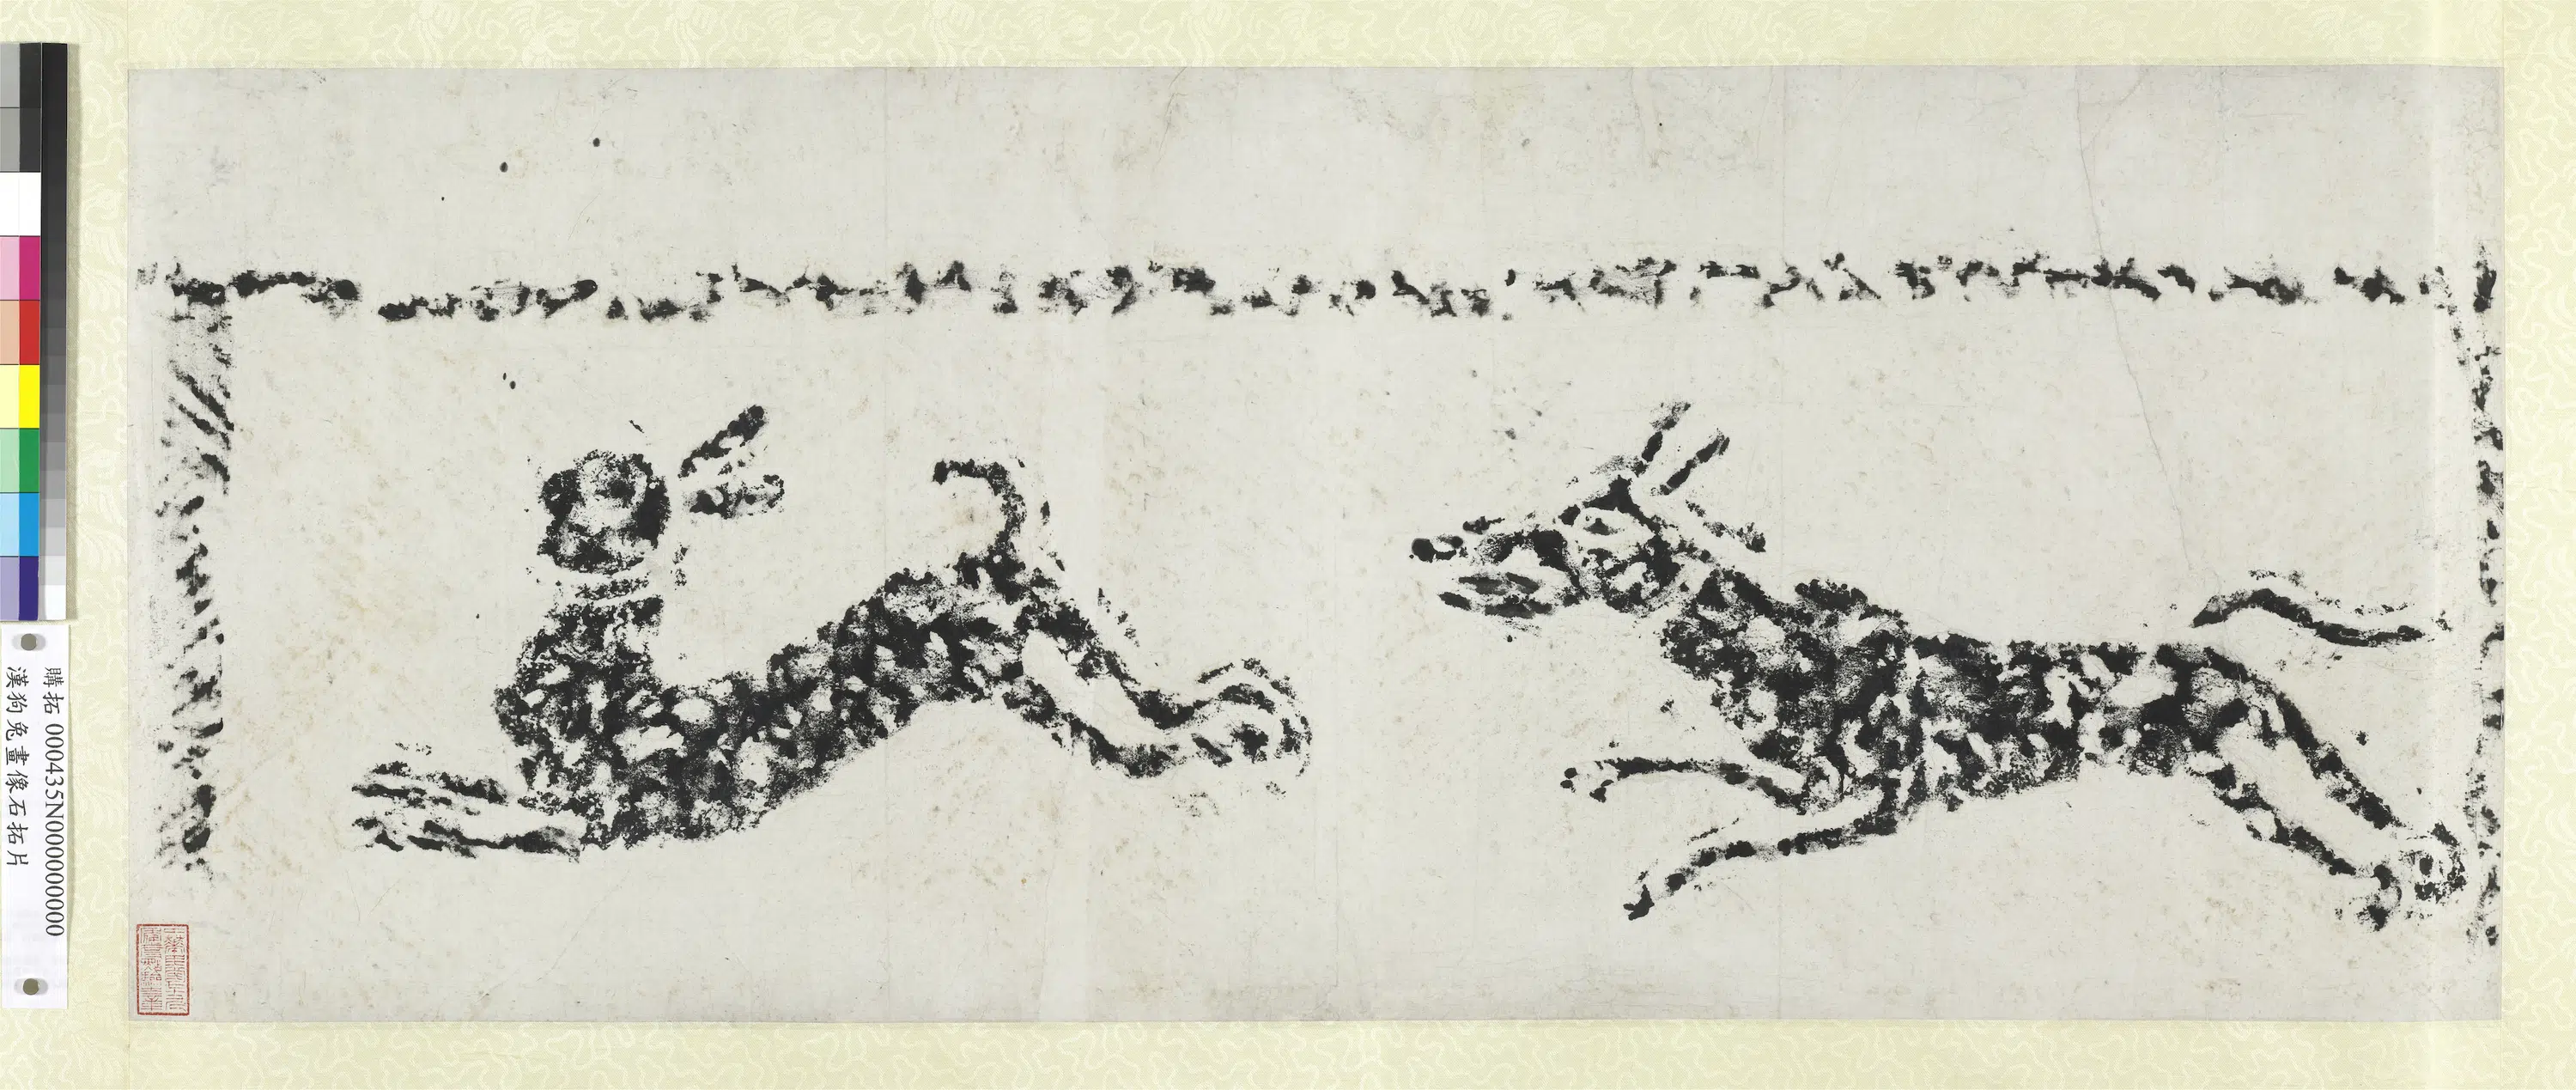 購拓 000435N000000000
漢狗兔畫像石拓片